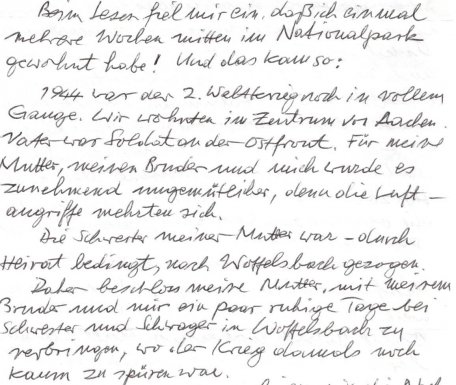 Beim Lesen fiel mir ein, daß ich einmal
mehrere Wochen mitten im Nationalpark
gewohnt habe! Und das kam so:
1944 war der 2. Weltkrieg noch in vollem
Gange. Wir wohnten im Zentrum von Aachen.
Vater war Soldat an der Ostfront. Für meine
Mutter, meinen Bruder und mich wurde es
zunehmend ungemütlicher, denn die Luft-
angriffe mehrten sich.
Die Schwester meiner Mutter war - durch
Heirat bedingt, nach Woffelsbach gezogen.
Daher beschloss meine Mutter, mit meinem
Bruder und mir ein paar ruhige Tage bei
Schwester und Schwager in Woffelsbach zu
verbringen, wo der Krieg damals noch
kaum zu spüren war.